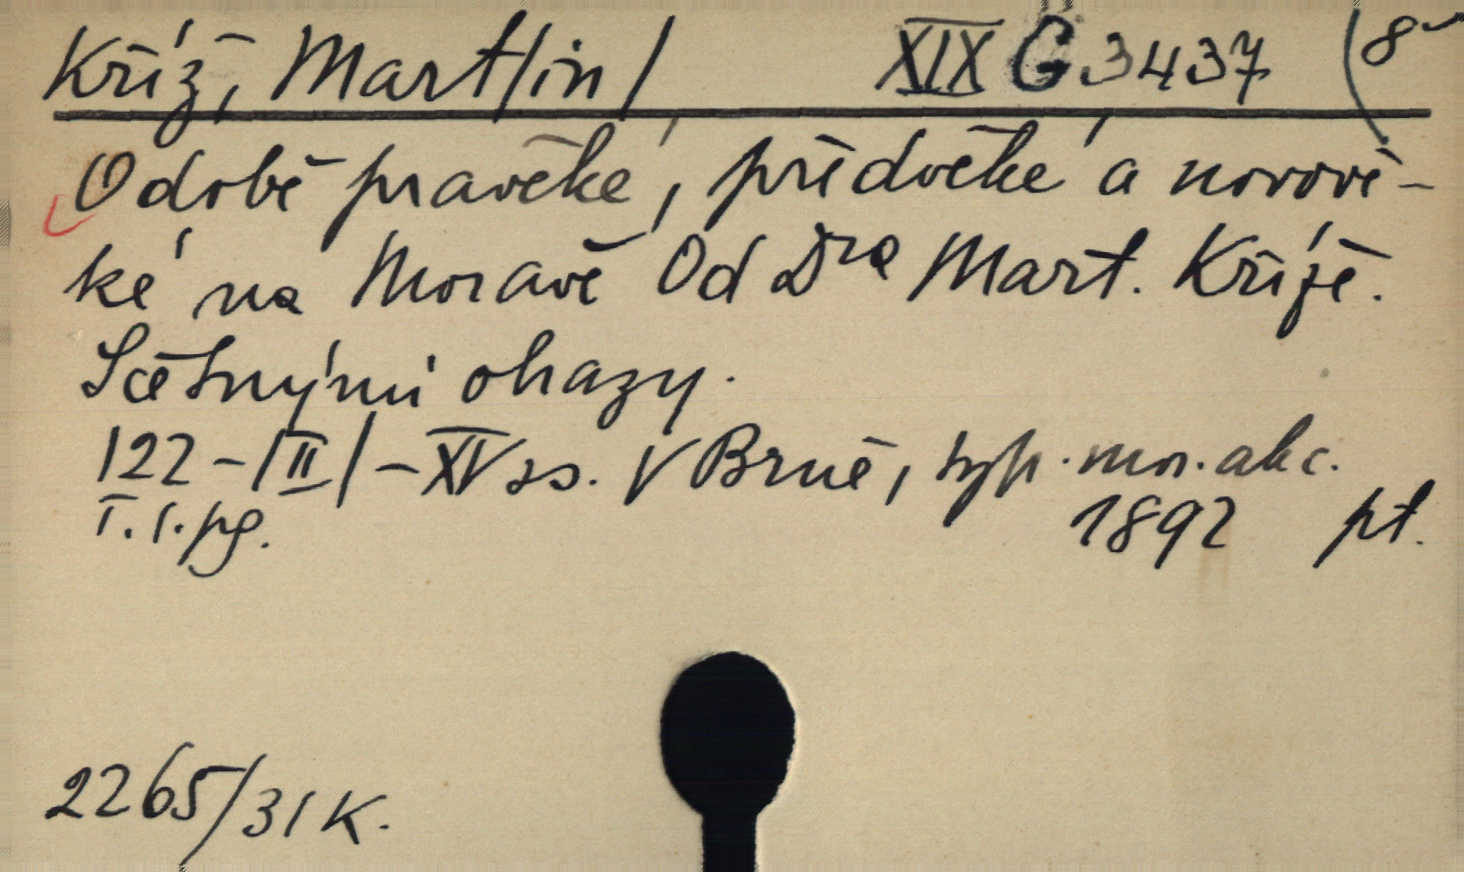 Kříž, Mart/in/ XIX G 3437 (8°
O době pravěké, předvěké a novově-
ké na Moravě Od Dra Mart. Kříže.
S četnými okazy.
122 - /II/ - XV ss. V Brně, typ. mor. akc.
T. s. pg. 1892 pt.
2265/31 K.